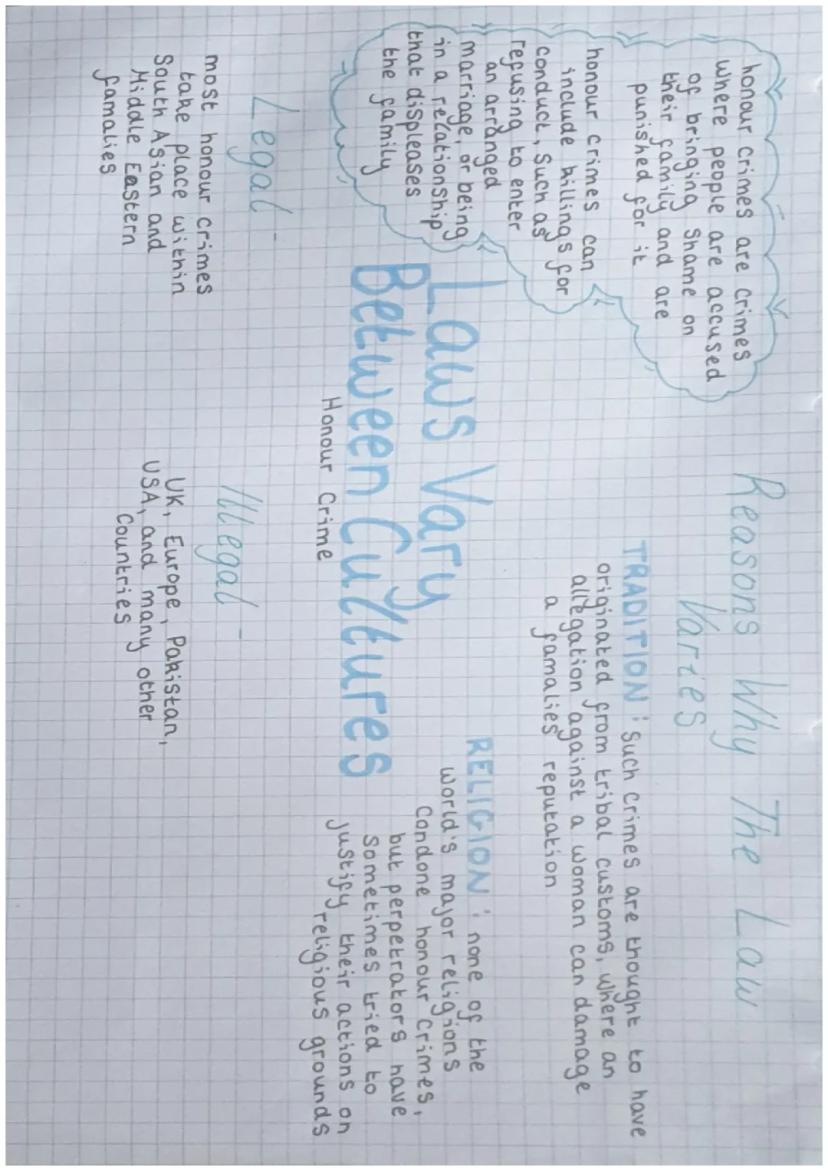 honour crimes are crimes
where people are accused
of bringing shame on
their family and are
punished for it
honour crimes can
include killings for
conduct, such as
refusing to enter
an arranged
marriage, or being
in a relationship
that displeases
the family
Reasons Why The Law
Varies
TRADITION: such crimes are thought to have
originated from tribal customs, where an
allegation against a woman can damage
a famalies reputation
RELIGION: none of the
world's major religions
condone honour crimes,
but perpetrators have
sometimes tried to
justify their actions on
religious grounds
Laws Vary
Between Cultures
Honour Crime
Legal -
most honour crimes
take place within
South Asian and
Middle Eastern
famalies
Illegal -
UK, Europe, Pakistan,
USA, and many other
countries